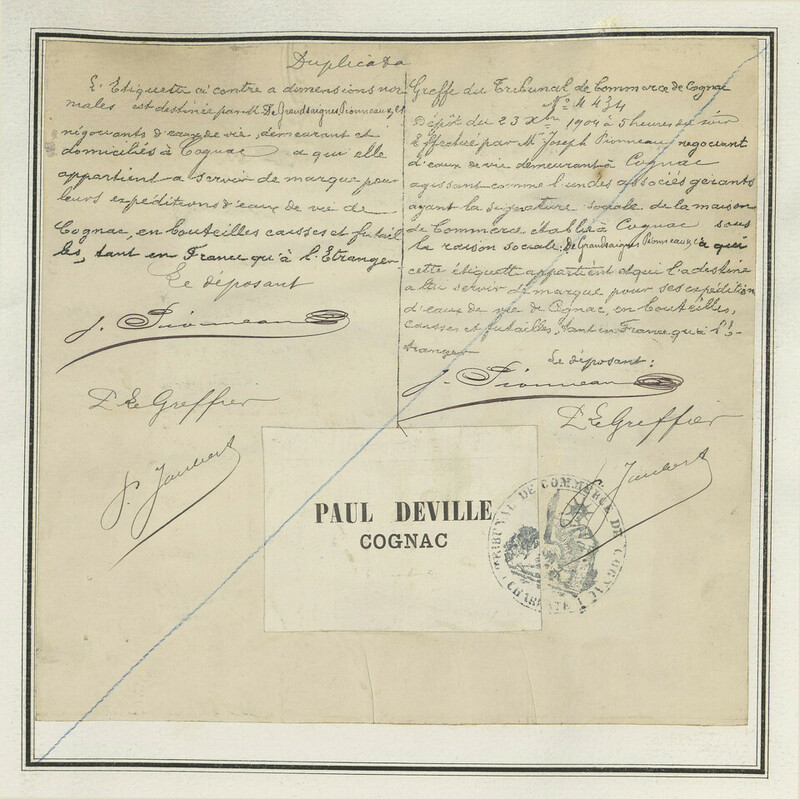 Duplicata
L'Etiquette ci contre a dimensions nor
males est destinée par M. De Grandsaignes, Pionneau &
négociants d'eaux de vie, demeurant et
domiciliés à Cognac a qui elle
appartient a servir de marque pour
leurs expéditions d'eaux de vie de
Cognac, en bouteilles caisses et futail
les, tant en France qu'à l'Etranger
Le déposant
J. Pionneau
P. Le Greffier
P. Jaubert
Greffe du Tribunal de Commerce de Cognac
No 4434
Dépôt du 23 Xbre 1904 à 5 heures du soir
Effectué par Mr Joseph Pionneau négociant
d'eaux de vie demeurant à Cognac
agissant comme l'un des associés gérants
ayant la signature sociale de la maison
de Commerce établie à Cognac sous
la raison sociale: De Grandsaignes Pionneau & à qui
cette étiquette appartient et qui l'a destine
a lui servir de marque pour ses expédition
d'eaux de vie de Cognac, en bouteilles,
caisses et futailles, tant en France qu'à l'E-
tranger
Le déposant:
J. Pionneau
P. Le Greffier
P. Jaubert
PAUL DEVILLE
COGNAC
TRIBUNAL DE COMMERCE DE COGNAC
CHARENTE